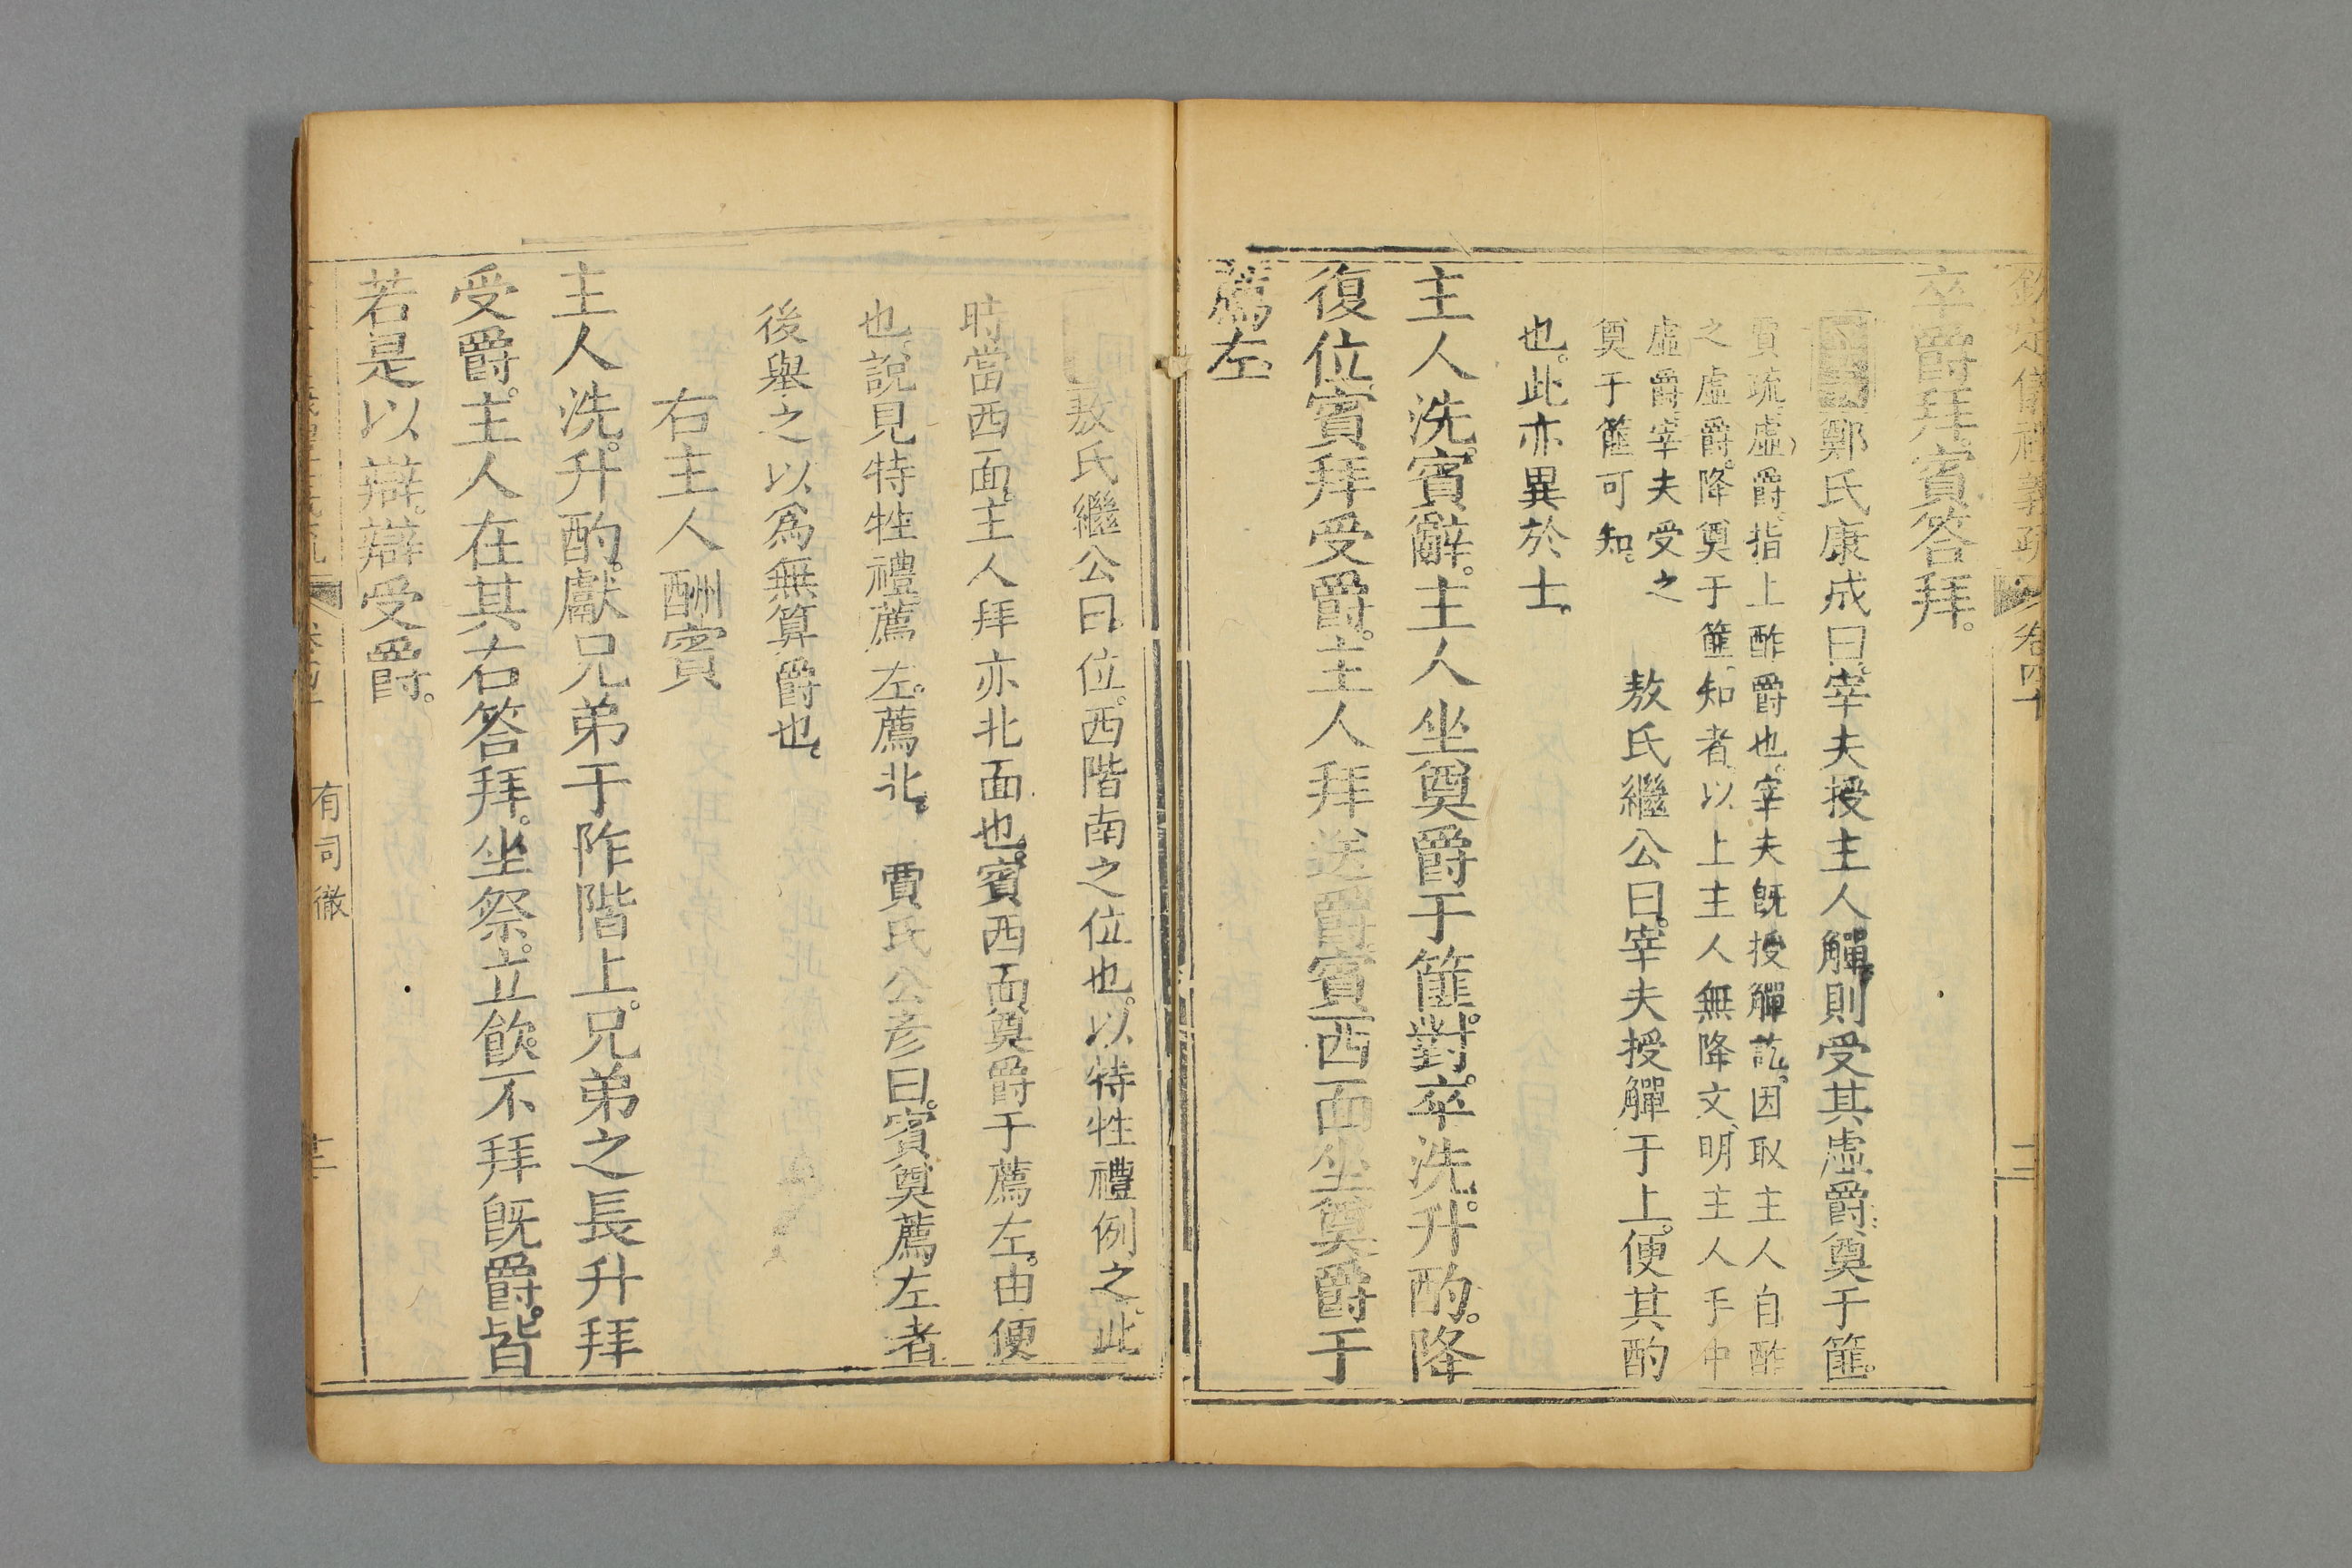 欽定儀禮義疏 卷四十 十二
卒爵拜賓答拜。
鄭氏康成曰宰夫授主人觶則受其虛爵奠于篚。
賈疏虛爵指上酢爵也。宰夫既授觶訖。因取主人自酢
之虛爵。降奠于篚。知者以上主人無降文、明主人手中
虛爵宰夫受之
奠于篚可知。
敖氏繼公曰。宰夫授觶于上。便其酌
也。此亦異於士。
主人洗。賓辭。主人坐奠爵于篚。對。卒洗。升酌。降
復位賓拜受爵。主人拜送爵賓西面坐奠爵于
薦左。
敖氏繼公曰。位。西階南之位也。以特牲禮例之。此
時當西面。主人拜亦北面也。賓西面奠爵于薦左。由便
也。說見特牲禮薦左。薦北。 賈氏公彥曰。賓奠薦左者
後舉之以爲無算爵也。
右主人酬賓
主人洗。升酌。獻兄弟于阼階上。兄弟之長升拜
受爵。主人在其右答拜。坐祭。立飲。不拜既爵。皆
若是以辯。辯受爵。
有司徹